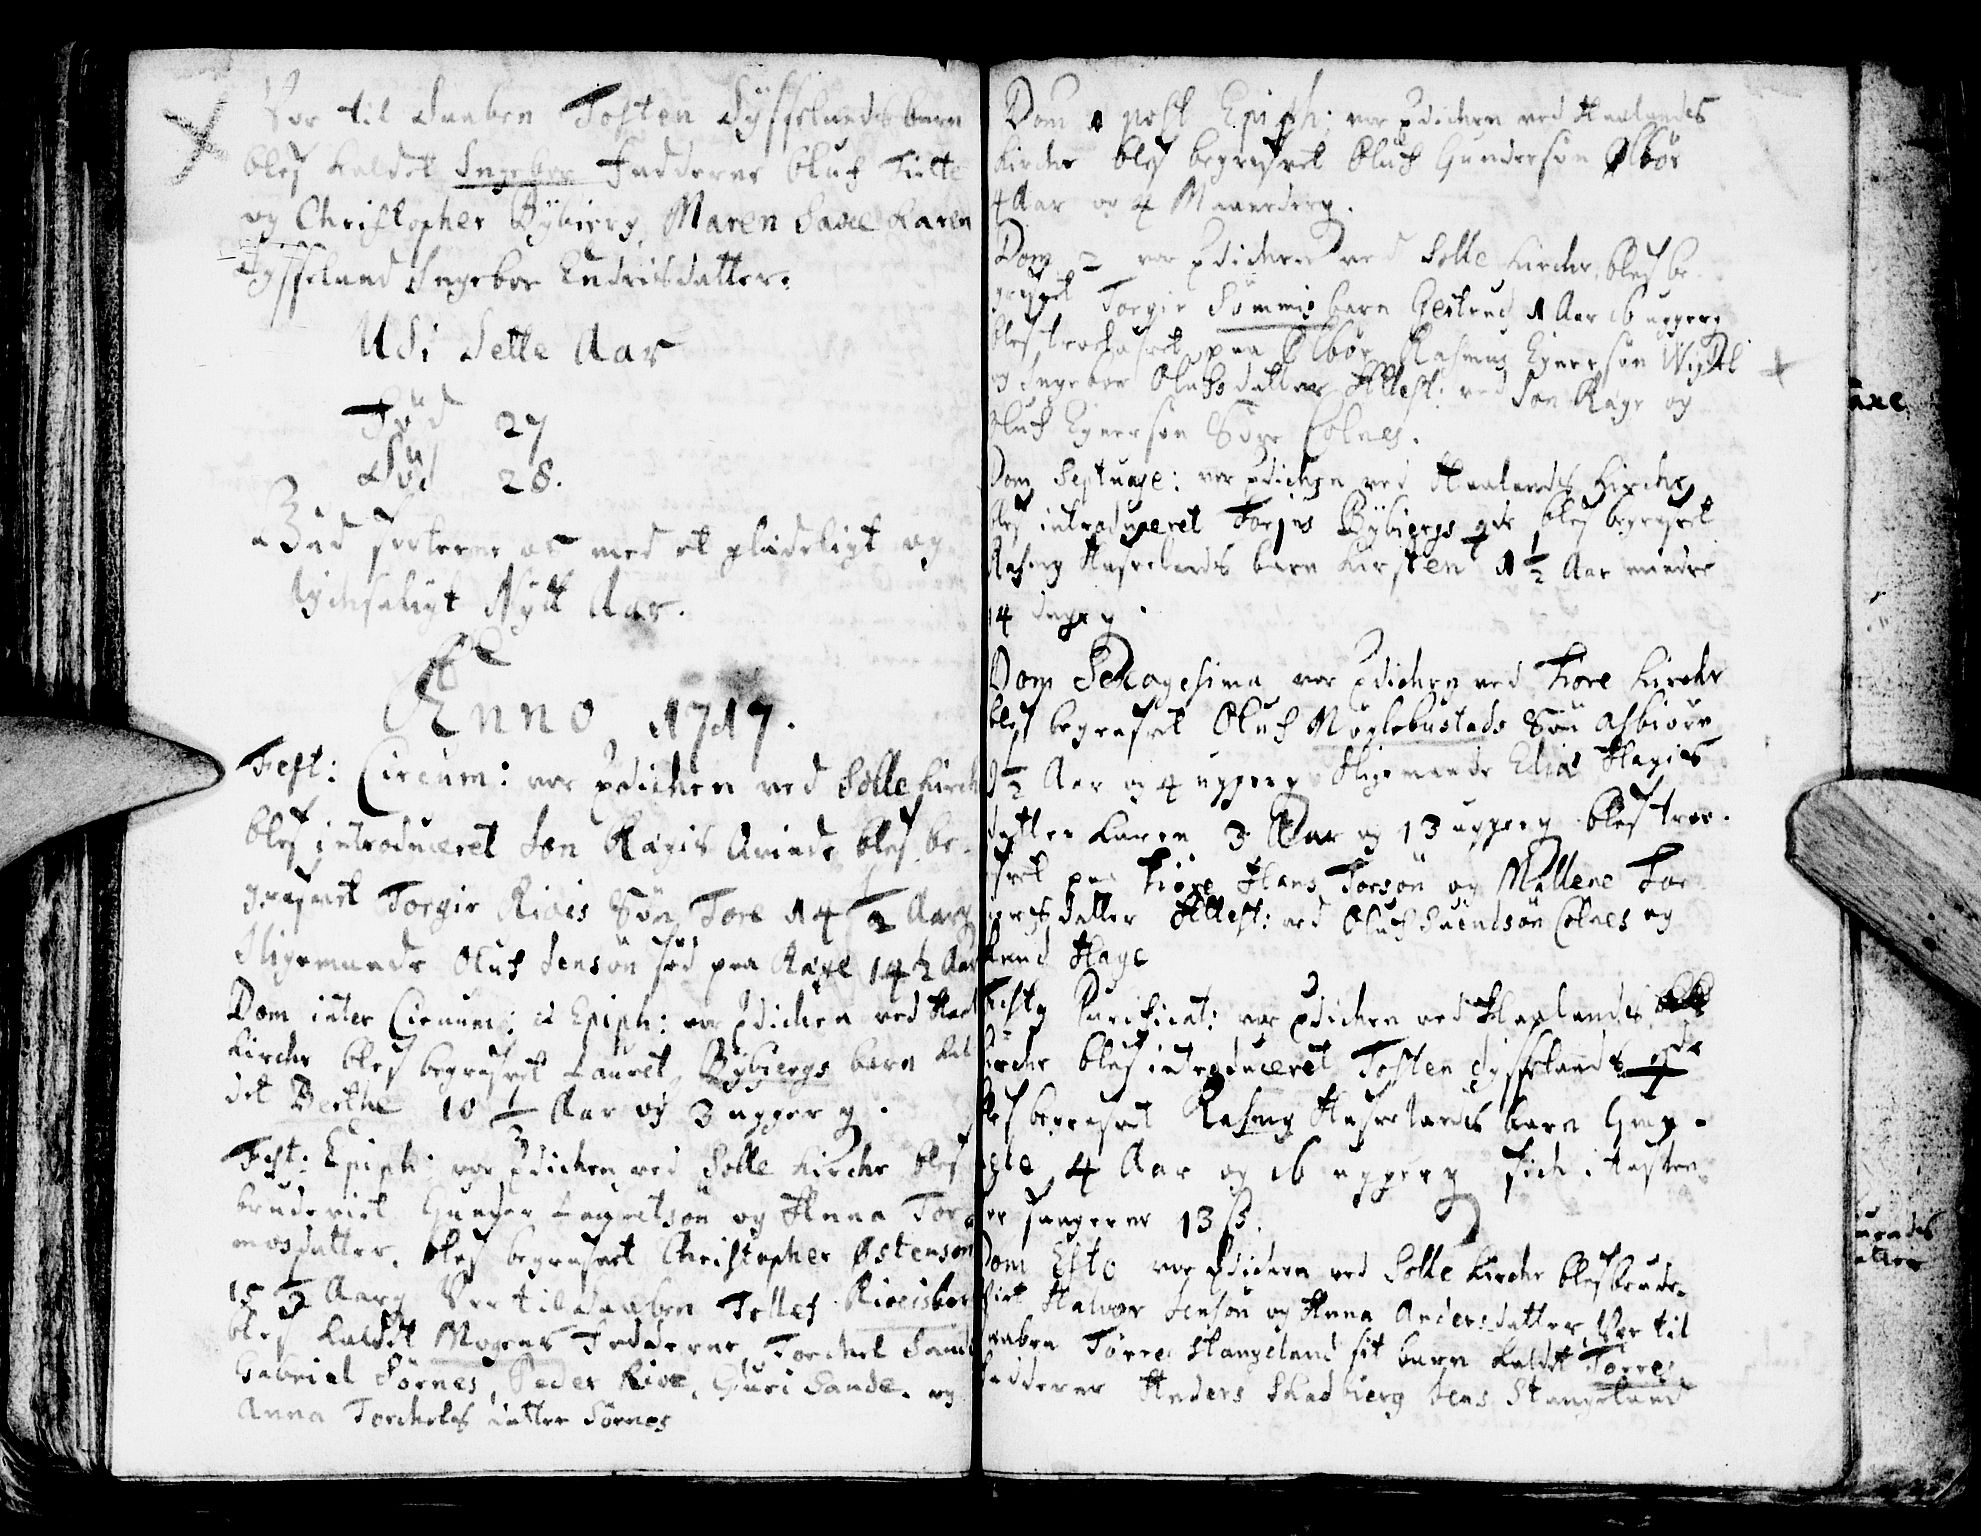 Var til daaben Tosten Dysselands barn
blef kaldet Ingebor Fadderne Oluf Tiotte
og Christopher Bybierg, Maren Saxe Karen
Dysseland Ingebor Endrisdatter.
Udi dette Aar
Fød 27
Død 28.
Gud os med et glædeligt og
lychsaligt Nytt Aar.
Anno 1717.
Fest: Circum: var Prædichen ved Solle Kirche
blef introduceret Jon Rægis Qvinde blef be-
grafvet Torgir Riveis Søn Tore 14 1/2 Aarg
Oluf Jensøn fød paa Ræge 14 1/2 Aar
Dom inter Circumc: et Epiph: var Prædichen ved Haal
Kirche blef begrafvet Lauret Bybiergs barn kal
det Berthe 10 1/2 Aar og 3 uger g.
Fest: Epiph: var Prædichen ved Solle Kirche blef
brudeviet Gunder Lauretsøn og Anna Tor-
mosdatter, blef begrafvet Christopher Ostenson
15 1/2 Aarg Var til daaben Tollef
blef kaldet Mogens Fadderne, Torchel Sande
Gabriel Sørnes, Peder Rive, Guri Sande. og
Anna Torchelsdatter Sørnes
Dom 1 post Epiph: var Prædichen ved Haalands
Kirche blef begrafvet Oluf Gunderson Ølbør
4 Aar og 4 Maaneder g.
Dom 2 var Prædichen ved Solle Kirche, blef be-
grafvet Torgir Sømmis barn Gertrud 1 Aar 16 uger g
blef trolofvet paa Ølbør Rasmus Eynerson
og Ingebor Olufsdatter Attest: ved Jon Ræge og
Oluf Eynerson Søre Colnes.
Dom Septuage: var Prædichen ved Haalands Kirche,
blef introduceret Torjus Bybiergs qde, blef begrafvet
Rasmus barn Kirsten 1 1/2 Aar mindre
14 dage g.
Dom Sexagesima var Prædichen ved Tiore Kirche
blef begrafvet Oluf Møglebustads Søn Asbiørn
1/2 Aar og 4 uger g Elias Hagis
datter Karen 3 Aar og 13 uger g blef tro-
lofvet paa Tiore Hans Torsøn og Mallene Tor
datter Attest: ved Oluf Suendsøn Colnes og
Hage
Festo Purificat: var Prædichen ved Haalands
Kirche blef introduceret Tosten Dysselands qde
blef begrafvet Rasmus barn
4 Aar og 16 uger g fich i Taflen
er 13 ß.
Dom Esto var Prædichen ved Solle Kirche blef brude-
viet Halvor Jensøn og Anna Andersdatter, Var til
daaben Tørres Stangeland sit barn kaldet Torre,
Fadderne Anders Skadbierg Jens Stangeland